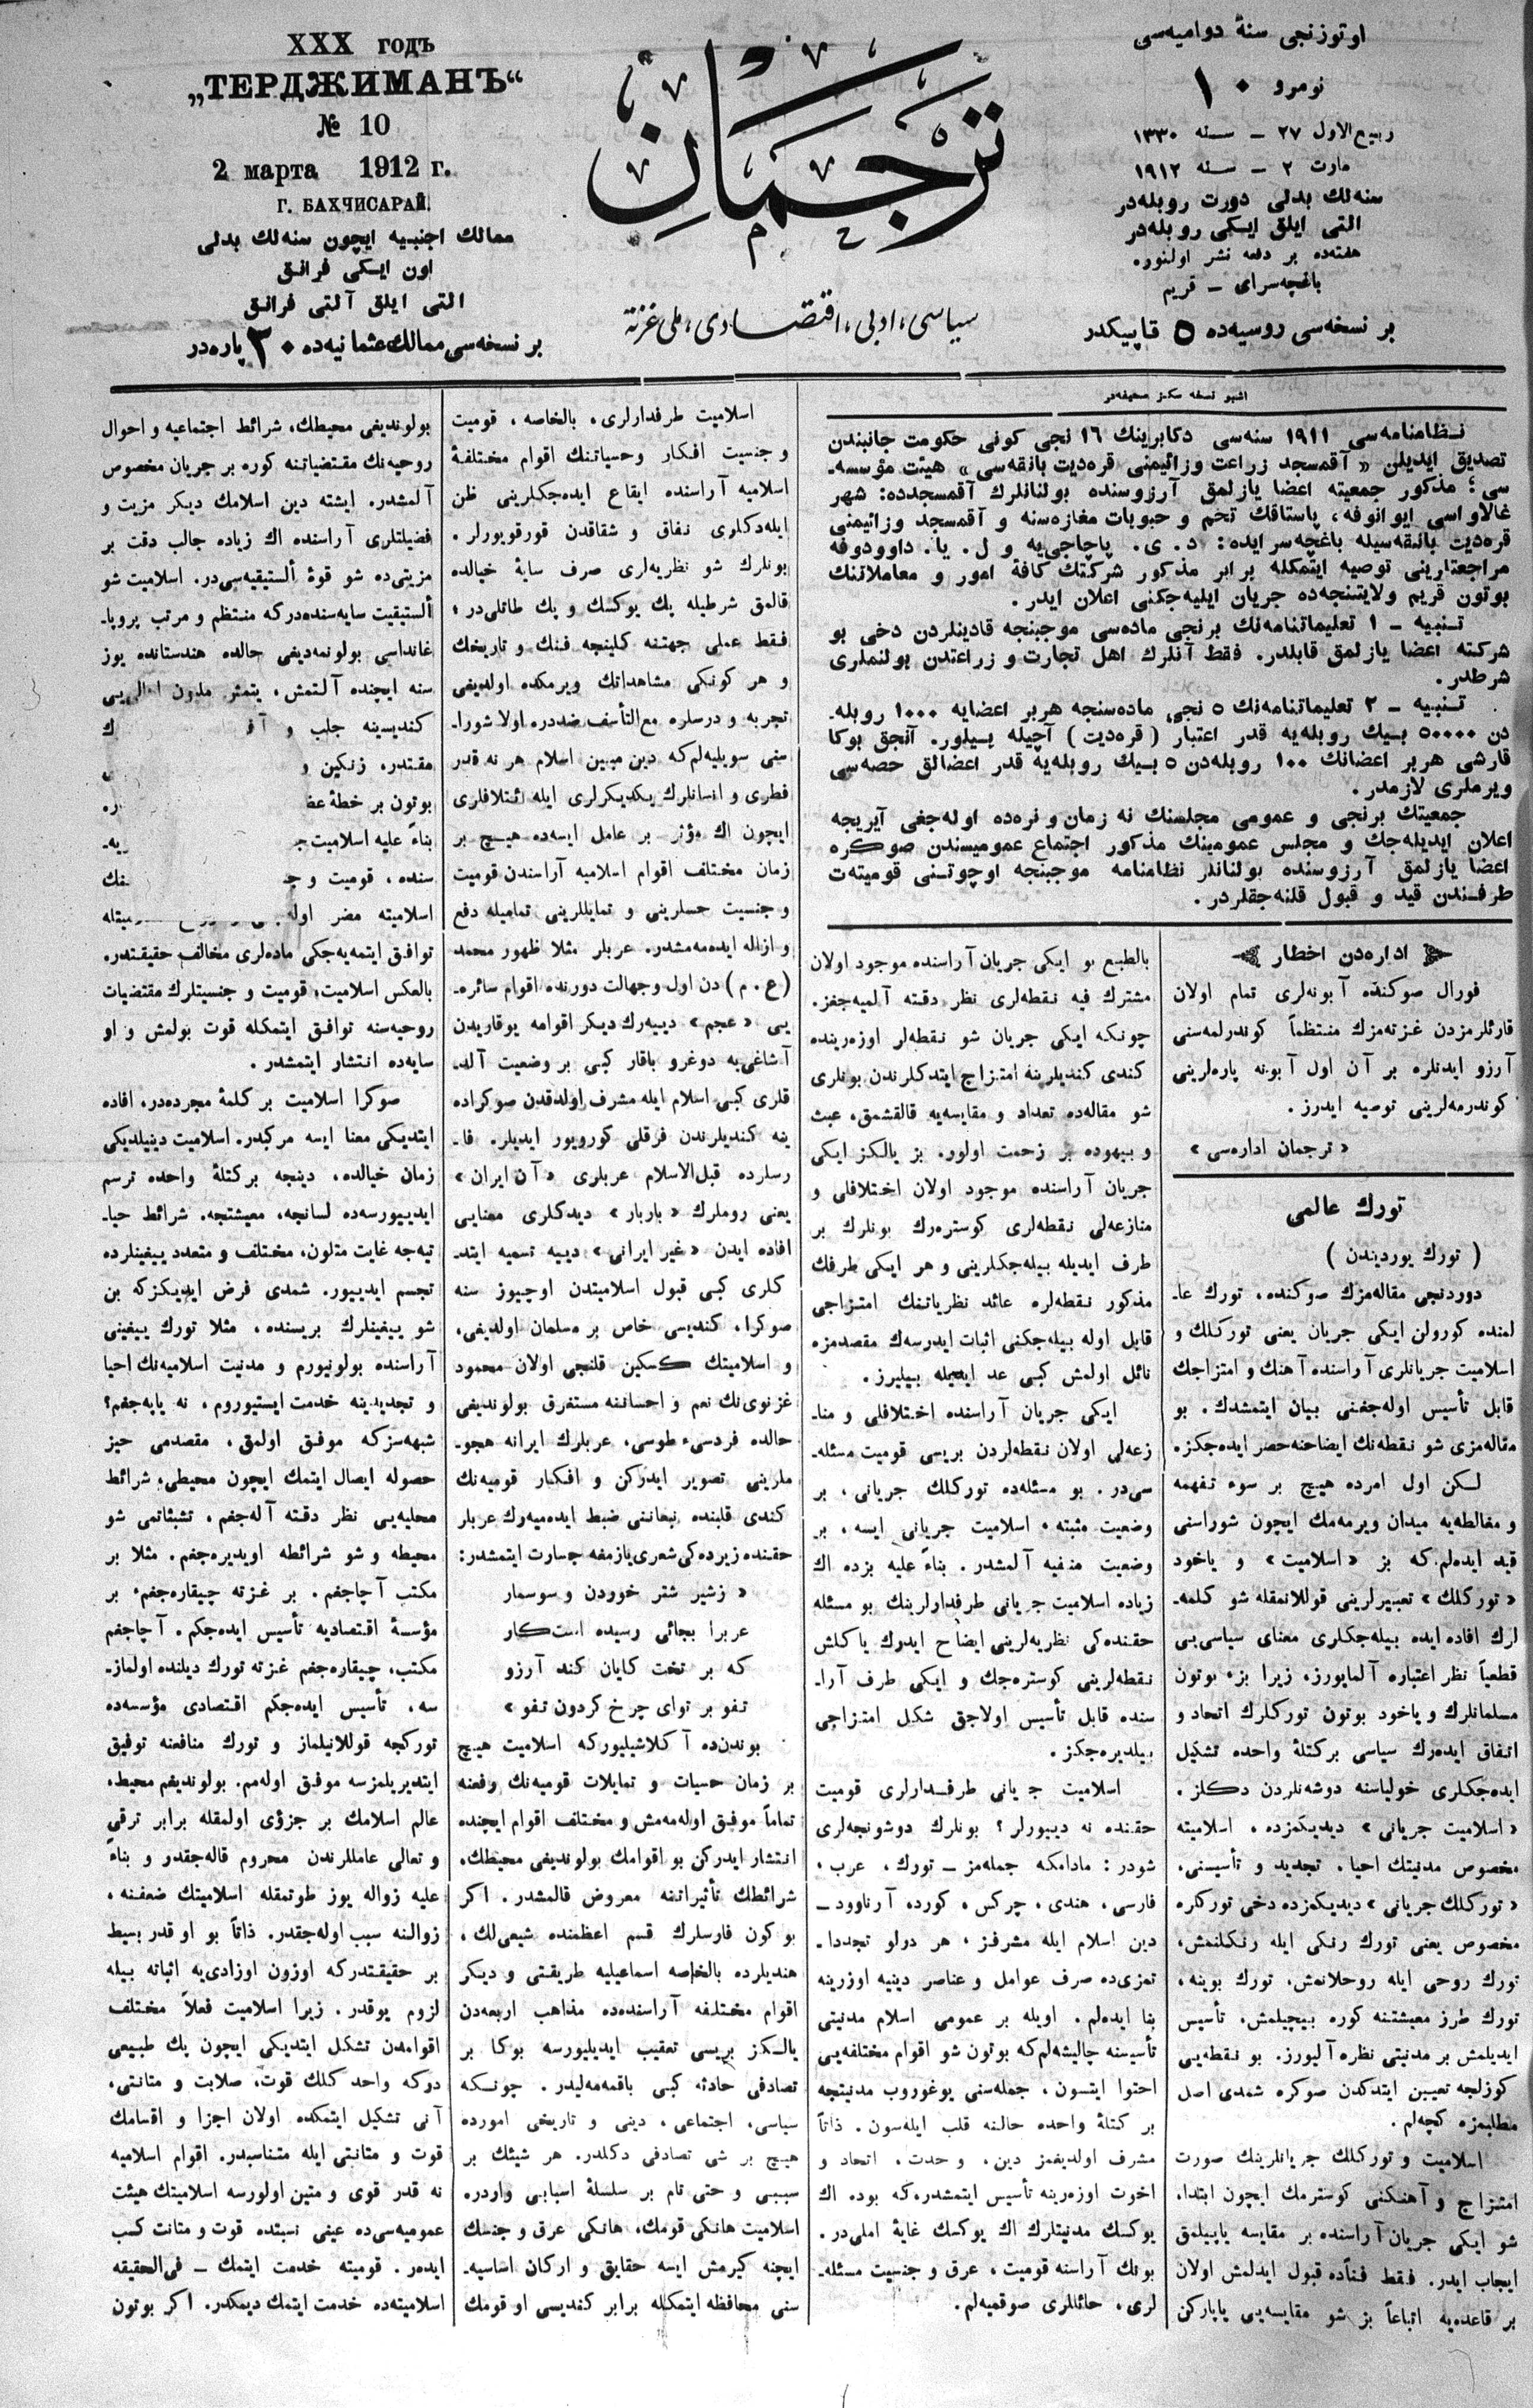 XXX годъ
„ТЕРДЖИМАНЪ“
№ 10
2 марта 1912 г.
Г. БАХЧИСАРАЙ.
ممالك اجنبيه ايچون سنه‌لك بدلی
اون ايكی فرانق
التی ايلق آلتی فرانق
بر نسخه‌سی ممالك عثمانيه‌ده ٣٠ پاره‌در
ترجمان
سياسی، ادبی، اقتصادی، ملی غزته
اوتوزنجی سنهٔ دواميه‌سی
نومرو ١٠
ربيع الاول ٢٧ ـ سنه ١٣٣٠
مارت ٢ ـ سنه ١٩١٢
سنه‌لك بدلی دورت روبله‌در
التی ايلق ايكی روبله‌در
هفته‌ده بر دفعه نشر اولنور.
باغچه‌سرای ـ قريم
بر نسخه‌سی روسيه‌ده ٥ قاپيكدر
اشبو نسخه سكز صحيفه‌در
نظامنامه‌سی ١٩١١ سنه‌سی دكابرينك ١٦ نجی كونی حكومت جانبندن
تصديق ايديلن « آقمسجد زراعت وزائيمنی قره‌ديت بانقه‌سی » هيئت مؤسسه‌ـ
سی؛ مذكور جمعيته اعضا يازلمق آرزوسنده بولنانلرك آقمسجدده: شهر
غالاواسی ايوانوفه، پاستاقك تخم و حبوبات مغازه‌سنه و آقمسجد وزائيمنی
قره‌ديت بانقه‌سيله باغچه‌سرايده: د. ی. پاچاجی‌يه و ل. يا. داوودوفه
مراجعتلرينی توصيه ايتمكله برابر مذكور شركتك كافهٔ امور و معاملاتنك
بوتون قريم ولايتنجه‌ده جريان ايليه‌جكنی اعلان ايدر.
تنبيه ـ ١ تعليماتنامه‌نك برنجی ماده‌سی موجبنجه قادينلردن دخی بو
شركته اعضا يازلمق قابلدر. فقط آنلرك اهل تجارت و زراعتدن بولنملری
شرطدر.
تنبيه ـ ٢ تعليماتنامه‌نك ٥ نجی ماده‌سنجه هربر اعضايه ١٠٠٠ روبله‌ـ
دن ٥٠٠٠٠ بيك روبله‌يه قدر اعتبار ( قره‌ديت ) آچيله بيلور. آنجق بوكا
قارشی هربر اعضانك ١٠٠ روبله‌دن ٥ بيك روبله‌يه قدر اعضالق حصه‌سی
ويرملری لازمدر.
جمعيتك برنجی و عمومی مجلسنك نه زمان و نره‌ده اوله‌جغی آيريجه
اعلان ايديله‌جك و مجلس عمومينك مذكور اجتماع عموميسندن صوكره
اعضا يازلمق آرزوسنده بولنانلر نظامنامه موجبنجه اوچوتنی قوميته‌ت
طرفندن قيد و قبول قلنه‌جقلردر.
اداره‌دن اخطار
فورال صوكنده آبونه‌لری تمام اولان
قارئلرمزدن غزته‌مزك منتظماً كوندرلمه‌سنی
آرزو ايدنلره بر آن اول آبونه پاره‌لرينی
كوندرمه‌لرينی توصيه ايدرز.
« ترجمان اداره‌سی »
تورك عالمی
( تورك يوردندن )
دوردنجی مقاله‌مزك صوكنده، تورك عا‌ـ
لمنده كورولن ايكی جريان يعنی توركلك و
اسلاميت جريانلری آراسنده آهنك و امتزاجك
قابل تأسيس اوله‌جغنی بيان ايتمشدك. بو
مقاله‌مزی شو نقطه‌نك ايضاحنه حصر ايده‌جكز.
لكن اول امرده هيچ بر سوء تفهمه
و مغالطه‌يه ميدان ويرمه‌مك ايچون شوراسنی
قيد ايده‌لم كه بز « اسلاميت » و ياخود
« توركلك » تعبيرلرينی قوللانمقله شو كلمه‌ـ
لرك افاده ايده بيله‌جكلری معنای سياسی‌يی
قطعياً نظر اعتباره آلمايورز. زيرا بز، بوتون
مسلمانلرك و ياخود بوتون توركلرك اتحاد و
اتفاق ايده‌رك سياسی بر كتلهٔ واحده تشكيل
ايده‌جكلری خولياسنه دوشه‌نلردن دكلز.
« اسلاميت جريانی » ديديكمزده، اسلاميته
مخصوص مدنيتك احيا، تجديد و تأسيسنی،
« توركلك جريانی » ديديكمزده دخی توركلره
مخصوص يعنی تورك رنكی ايله رنكلنمش،
تورك روحی ايله روحلانمش، تورك بوينه،
تورك طرز معيشتنه كوره بيچيلمش، تأسيس
ايديلمش بر مدنيتی نظره آليورز. بو نقطه‌يی
كوزلجه تعيين ايتدكدن صوكره شمدی اصل
مطلبمزه كچه‌لم.
اسلاميت و توركلك جريانلرينك صورت
امتزاج و آهنكنی كوسترمك ايچون ابتدا،
شو ايكی جريان آراسنده بر مقايسه ياپيلمق
ايجاب ايدر. فقط فناً‌ده قبول ايدلمش اولان
بر قاعده‌يه اتباعاً بز شو مقايسه‌يی ياپاركن
بالطبع بو ايكی جريان آراسنده موجود اولان
مشترك فيه نقطه‌لری نظر دقته آلميه‌جغز.
چونكه ايكی جريان شو نقطه‌لر اوزه‌رينده
كندی كنديلرينه امتزاج ايتدكلرندن بونلری
شو مقاله‌ده تعداد و مقايسه‌يه قالقشمق، عبث
و بيهوده بر زحمت اولور. بز يالكز ايكی
جريان آراسنده موجود اولان اختلافلی و
منازعه‌لی نقطه‌لری كوستره‌رك بونلرك بر
طرف ايديله بيله‌جكلرينی و هر ايكی طرفك
مذكور نقطه‌لره عائد نظرياتنك امتزاجی
قابل اوله بيله‌جكنی اثبات ايدرسه‌ك مقصدمزه
نائل اولمش كبی عد ايديله بيليرز.
ايكی جريان آراسنده اختلافلی و منا‌ـ
زعه‌لی اولان نقطه‌لردن بريسی قوميت مسئله‌ـ
سی‌در. بو مسئله‌ده توركلك جريانی، بر
وضعيت مثبته، اسلاميت جريانی ايسه، بر
وضعيت منفيه آلمشدر. بناءً عليه بزده اك
زياده اسلاميت جريانی طرفدارلرينك بو مسئله
حقنده‌كی نظريه‌لرينی ايضاح ايدرك ياكلش
نقطه‌لرينی كوستره‌جك و ايكی طرف آرا‌ـ
سنده قابل تأسيس اولاجق شكل امتزاجی
بيلديره‌جكز.
اسلاميت جريانی طرفدارلری قوميت
حقنده نه دييورلر؟ بونلرك دوشونجه‌لری
شودر: مادامكه جمله‌مز ـ تورك، عرب،
فارسی، هندی، چركس، كورد، آرناوود ـ
دين اسلام ايله مشرفز، هر درلو تجددا‌ـ
تمزی‌ده صرف عوامل و عناصر دينيه اوزرينه
بنا ايده‌لم. اويله بر عمومی اسلام مدنيتی
تأسيسنه چاليشه‌لم كه بوتون شو اقوام مختلفه‌يی
احتوا ايتسون، جمله‌سنی يوغوروب مدنيتجه
بر كتلهٔ واحده حالنه قلب ايله‌سون. ذاتاً
مشرف اولديغمز دين، وحدت، اتحاد و
اخوت اوزه‌رينه تأسيس ايتمشدر، كه بوده اك
يوكسك مدنيتلرك اك يوكسك غايهٔ املی‌در.
بونك آراسنه قوميت، عرق و جنسيت مسئله‌ـ
لری، حائللری صوقميه‌لم.
اسلاميت طرفدارلری، بالخاصه، قوميت
و جنسيت افكار وحسياتنك اقوام مختلفهٔ
اسلاميه آراسنده ايقاع ايده‌جكلرينی ظن
ايله‌دكلری نفاق و شقاقدن قورقويورلر.
بونلرك شو نظريه‌لری صرف ساحهٔ خيالده
قالمق شرطيله پك يوكسك و پك طاتلی‌در؛
فقط عملی جهتنه كلينجه فنك و تاريخك
و هر كونكی مشاهداتك ويرمكده اولديغی
تجربه و درسلره مع التأسف ضددر. اولا شورا‌ـ
سنی سويليه‌لم كه دين مبين اسلام هر نه قدر
فطری و انسانلرك يكديكرلری ايله ائتلافلری
ايچون اك مؤثر بر عامل ايسه‌ده هيچ بر
زمان مختلف اقوام اسلاميه آراسندن قوميت
و جنسيت حسلرينی و تمايللرينی تماميله دفع
و ازاله ايده‌مه‌مشدر. عربلر مثلا ظهور محمد
(ع. م) دن اول وجهالت دورنده اقوام سائره‌ـ
يی « عجم » دييه‌رك ديكر اقوامه يوقاريدن
آشاغی‌يه دوغرو باقار كبی بر وضعيت آلد‌ـ
قلری كبی اسلام ايله مشرف اولدقدن صوكراده
ينه كنديلرندن فرقلی كورويور ايديلر. فا‌ـ
رسلرده قبل الاسلام عربلری « آن ايران »
يعنی روملرك « باربار » ديدكلری معنايی
افاده ايدن « غير ايرانی » دييه تسميه ايتد‌ـ
كلری كبی قبول اسلاميتدن اوچيوز سنه
صوكرا، كنديسی خاص بر مسلمان اولديغی،
و اسلاميتك كسكين قلنجی اولان محمود
غزنوی‌نك نعم و احساننه مستغرق بولونديغی
حالده فردسیء طوسی، عربلرك ايرانه هجو‌ـ
ملرينی تصوير ايدركن و افكار قوميه‌نك
كندی قلبنده نبعاننی ضبط ايده‌ميه‌رك عربلر
حقنده زيرده‌كی شعری يازمغه جسارت ايتمشدر:
« زشير شتر خوردن و سوسمار
عربرا بجائی رسيده است كار
كه بر تخت كيان كند آرزو
تفو بر توای چرخ كردون تفو »
بوندن‌ده آكلاشيليوركه اسلاميت هيچ
بر زمان حسيات و تمايلات قوميه‌نك رفعنه
تماماً موفق اوله‌مه‌مش و مختلف اقوام ايچنده
انتشار ايدركن بو اقوامك بولونديغی محيطك،
شرائطك تأثيراتنه معروض قالمشدر. اكر
بوكون فارسلرك قسم اعظمنده شيعی‌لك،
هنديلرده بالخاصه اسماعيليه طريقتی و ديكر
اقوام مختلفه آراسنده‌ده مذاهب اربعه‌دن
يالكز بريسی تعقيب ايديليورسه بوكا بر
تصادفی حادثه كبی باقمه‌مه‌ليدر. چونكه
سياسی، اجتماعی، دينی و تاريخی امورده
هيچ بر شی تصادفی دكلدر. هر شيئك بر
سببی و حتی تام بر سلسلهٔ اسبابی واردر.
اسلاميت هانكی قومك، هانكی عرق و جنسك
ايچنه كيرمش ايسه حقايق و اركان اساسيه‌ـ
سنی محافظه ايتمكله برابر كنديسی او قومك
بولونديغی محيطك، شرائط اجتماعيه و احوال
روحيه‌نك مقتضياتنه كوره بر جريان مخصوص
آلمشدر. ايشته دين اسلامك ديكر مزيت و
فضيلتلری آراسنده اك زياده جالب دقت بر
مزيتی‌ده شو قوهٔ ألستيقيه‌سی‌در. اسلاميت شو
ألستيقيت سايه‌سنده‌دركه منتظم و مرتب پروپا‌ـ
غانداسی بولونمه‌ديغی حالده هندستانده يوز
سنه ايچنده آلتمش، يتمش
كنديسينه جلب و
مقتدر، زنكين و
بوتون بر خطهٔ
بناءً عليه اسلاميت
سنده، قوميت و
اسلاميته مضر
توافق ايتمه‌يه‌جكی ماده‌لری مخالف حقيقتدر.
بالعكس اسلاميت، قوميت و جنسيتلرك مقتضيات
روحيه‌سنه توافق ايتمكله قوت بولمش و او
سايه‌ده انتشار ايتمشدر.
صوكرا اسلاميت بر كلمهٔ مجرده‌در، افاده
ايتديكی معنا ايسه مركبدر. اسلاميت دينيلديكی
زمان خيالده، دينجه بر كتلهٔ واحده ترسم
ايدييورسه‌ده لسانجه، معيشتجه، شرائط حيا‌ـ
تيه‌جه غايت متلون، مختلف و متعدد ييغينلرده
تجسم ايدييور. شمدی فرض ايديكزكه بن
شو ييغينلرك بريسنده، مثلا تورك ييغينی
آراسنده بولونيورم و مدنيت اسلاميه‌نك احيا
و تجديدينه خدمت ايستيوروم، نه ياپه‌جغم؟
شبهه‌سزكه موفق اولمق، مقصدمی حيز
حصوله ايصال ايتمك ايچون محيطی، شرائط
محليه‌يی نظر دقته آله‌جغم، تشبثاتمی شو
محيطه و شو شرائطه اويديره‌جغم. مثلا بر
مكتب آچاجغم. بر غزته چيقاره‌جغم، بر
مؤسسهٔ اقتصاديه تأسيس ايده‌جكم. آچاجغم
مكتب، چيقاره‌جغم غزته تورك ديلنده اولماز‌ـ
سه، تأسيس ايده‌جكم اقتصادی مؤسسه‌ده
توركجه قوللانيلماز و تورك منافعنه توفيق
ايتديريلمزسه موفق اوله‌مم. بولونديغم محيط،
عالم اسلامك بر جزؤی اولمقله برابر ترقی
و تعالی عامللرندن محروم قاله‌جقدر و بناءً
عليه زواله يوز طوتمقله اسلاميتك ضعفنه،
زوالنه سبب اوله‌جقدر. ذاتاً بو او قدر بسيط
بر حقيقتدركه اوزون اوزادی‌يه اثباته بيله
لزوم يوقدر. زيرا اسلاميت فعلاً مختلف
اقوامدن تشكل ايتديكی ايچون پك طبيعی
دركه واحد كلك قوت، صلابت و متانتی،
آنی تشكيل ايتمكده اولان اجزا و اقسامك
قوت و متانتی ايله متناسبدر. اقوام اسلاميه
نه قدر قوی و متين اولورسه اسلاميتك هيئت
عموميه‌سی‌ده عينی نسبتده قوت و متانت كسب
ايده‌ر. قوميته خدمت ايتمك ـ فی الحقيقه
اسلاميته‌ده خدمت ايتمك ديمكدر. اكر بوتون